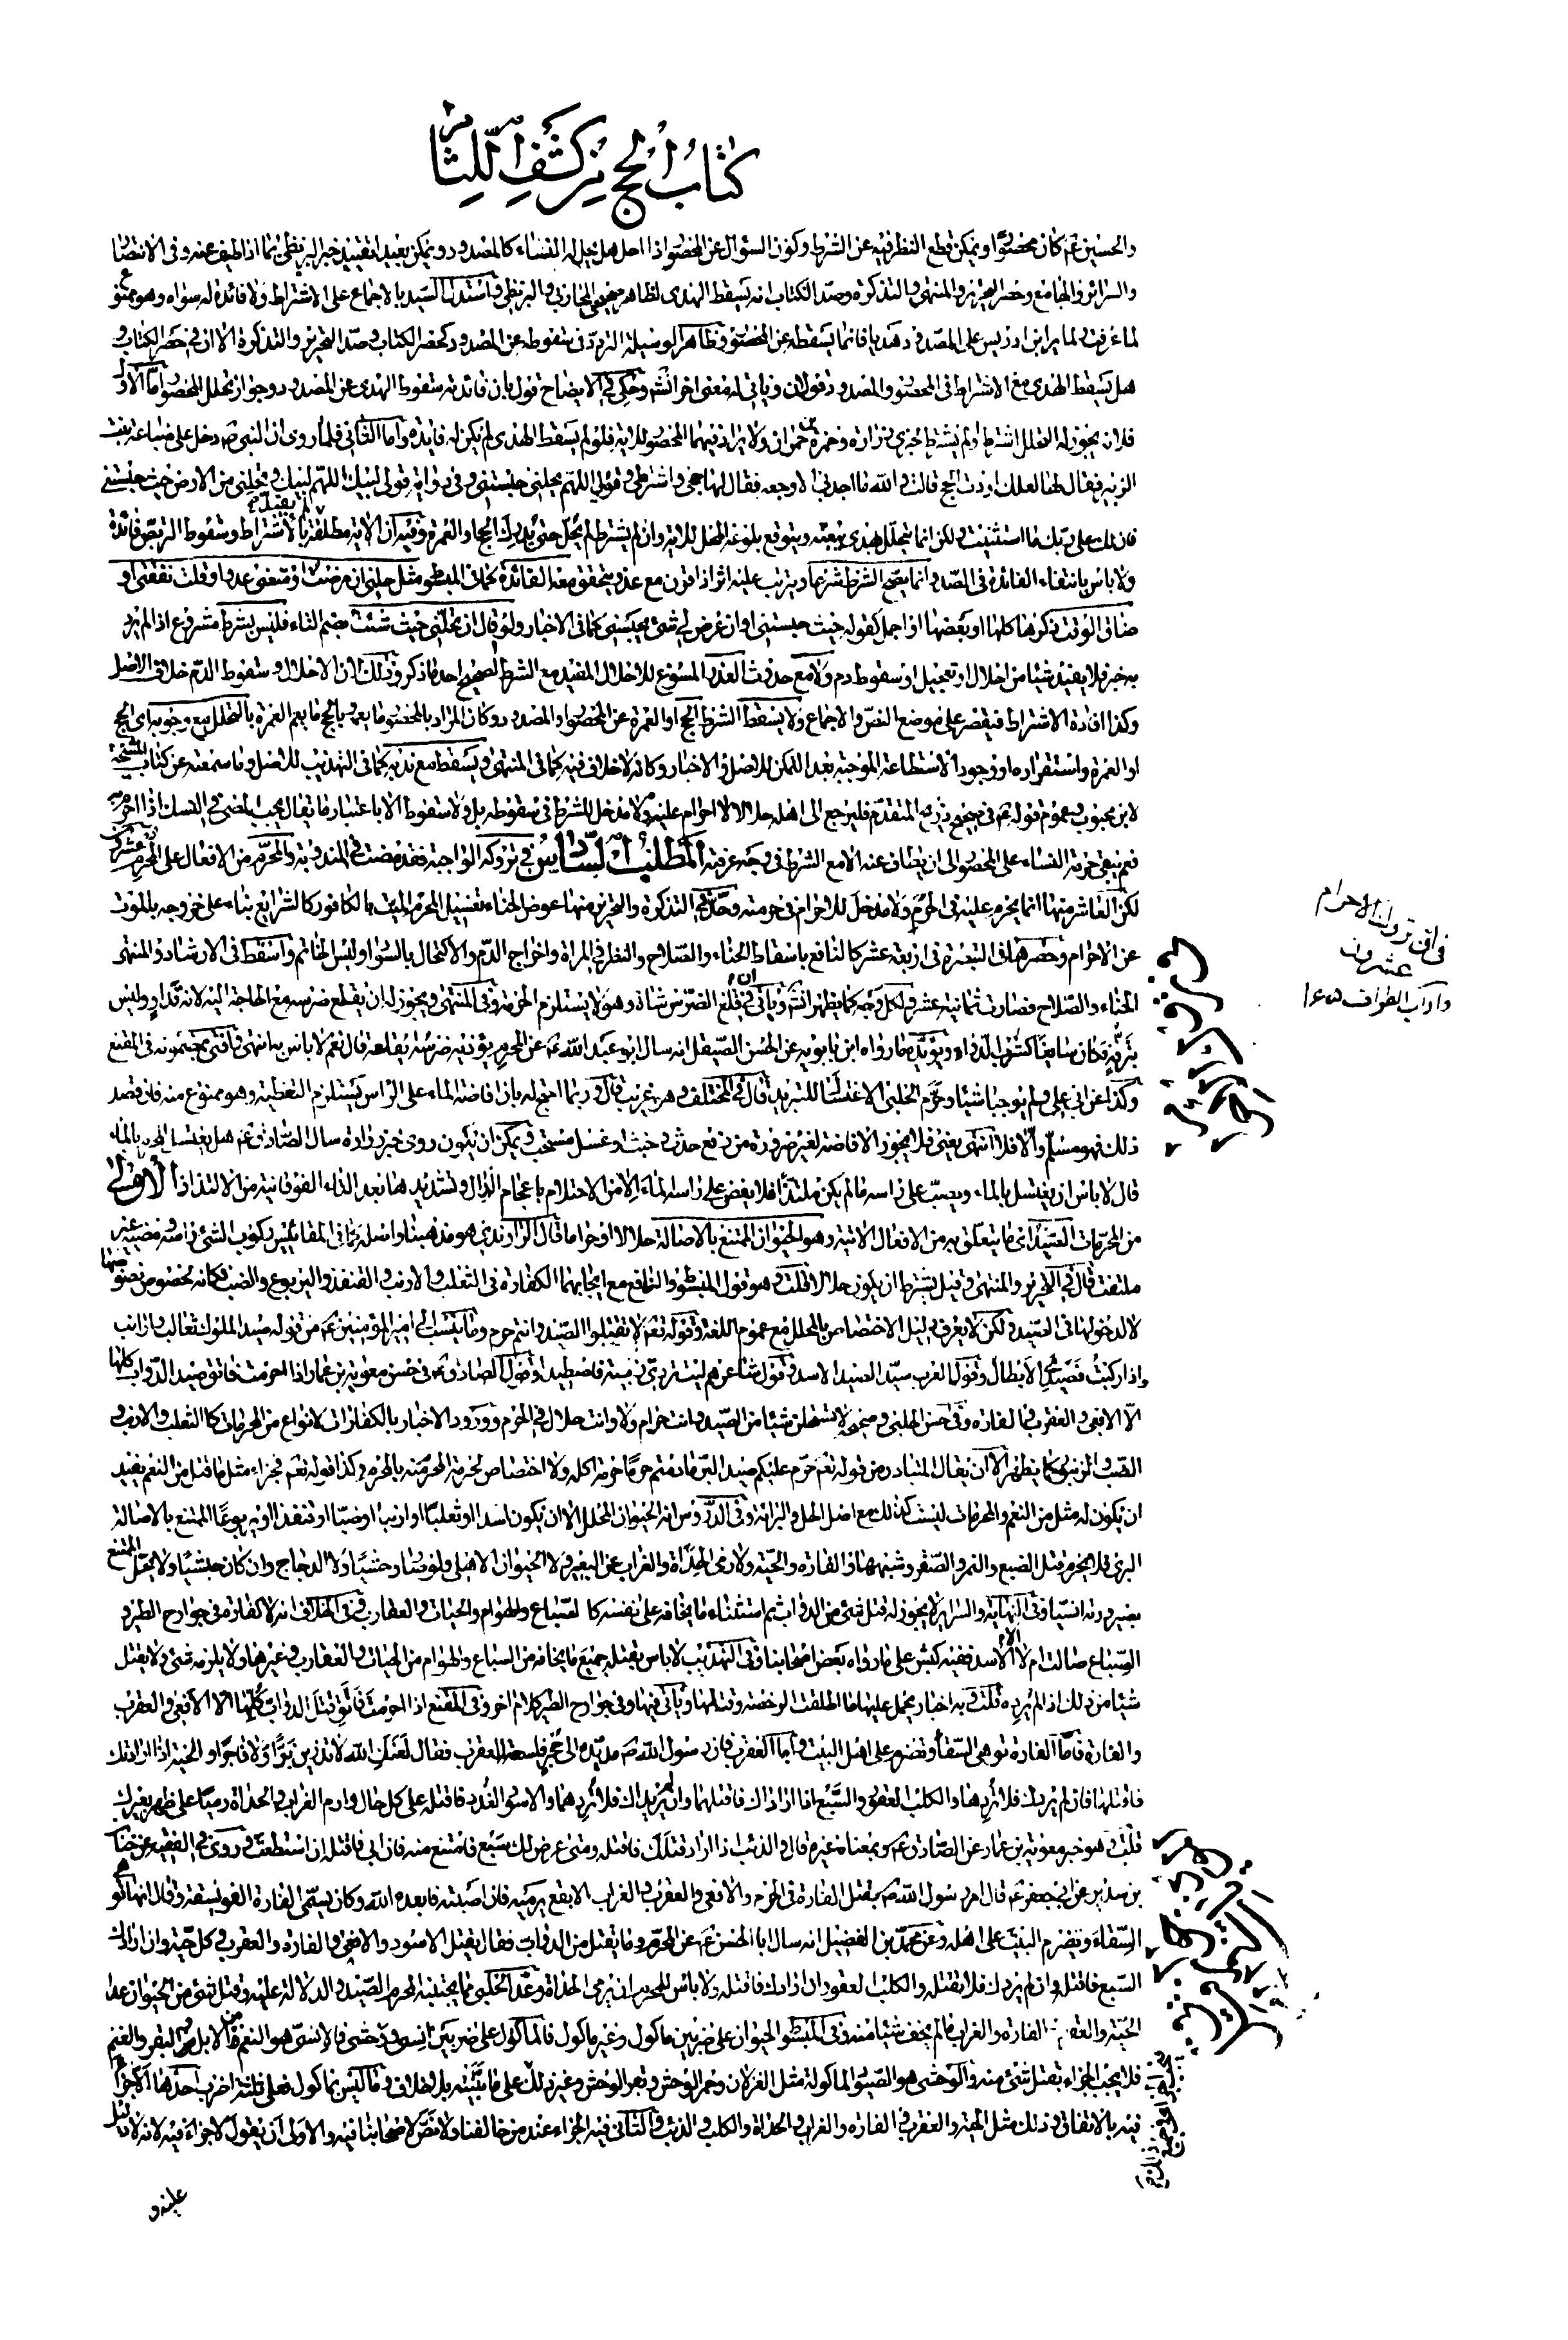 كتاب الحج من كشف اللثام
والحسين ع كان محصورا ويمكن قطع النظر فيه عن الشرط وكون السؤال عن المحصور اذا احل هل يحل له النساء كالمصدود ويمكن تقييد خبر البزنطي بما اذا طيف عنه وفى الانتصار
والسرائر والجامع وحصر التحرير والمنتهى والتذكرة وصد الكتاب انه يسقط الهدى لظاهر صحيحى المحاربي والبزنطي واستدل السيد بالاجماع على الاشتراط ولا فائدة له سواه وهو ممنوع
لما عرفت ولما ير ابن ادريس على المصدود هديا فانما يسقطه عن المحصور وظاهر الوسيلة التردد فى سقوطه عن المصدود كحصر الكتاب وصد التحرير والتذكرة الا ان في حصر الكتاب
هل يسقط الهدى مع الاشتراط فى المحصور والمصدود قولان وياتى له معنى اخر انش وحكى في الايضاح قول بان فائدته سقوط الهدى عن المصدود وجواز تحلل المحصور اما الاول
فلان يجوز له التحلل اشترط او لم يشترط لخبرى زرارة وحمزة بن حمران ولا يراد فيهما المحصور للاية فلو لم يسقط الهدى لم يكن له فايدة واما الثانى فلما روى ان النبى ص دخل على ضباعة بنت
الزبير فقال لها لعلك اردت الحج قالت والله ما اجدنى الا وجعة فقال لها حجى واشترطى وقولى اللهم تحلنى حيث حبستنى وفى رواية قولى لبيك اللهم لبيك وتحلنى من الارض حيث حبستنى
فان لك على ربك ما استثنيت ولكن انما يتحلل بهدى يبعثه ويتوقع بلوغه المحل للاية وان لم يشترط لم يحل حتى يدرك الحج او العمرة وفيه ان الاية مطلقة لم تقيد بالاشتراط وسقوط التربص فائدة
ولا باس بانتفاء الفائدة فى الصد وانما يصح الشرط شرعا ويترتب عليه اثر اذا اقترن مع عذر يتحقق معه الفائدة كما فى المبسوط مثل حلنى ان مرضت او منعنى عدو او قلت نفقتى او
ضاق الوقت ذكرها كلها او بعضها او اجمل كقوله حيث حبستنى او ان عرض لى شئ يحبسنى كما فى الاخبار ولو قال ان تحلنى حيث شئت بضم التاء فليس بشرط مشروع اذا لم يرد
به خبر فلا يفيد شيئا من احلال او تعجيل او سقوط دم ولا مع حدوث العذر المسوغ للاحلال المفيد مع الشرط الصحيح احد ما ذكر وذلك لان الاحلال وسقوط الدم خلاف الاصل
وكذا افادة الاشتراط فيقصر على موضع النص والاجماع ولا يسقط الشرط الحج او العمرة عن المحصور او المصدود وكان المراد بالمحصور ما يعمه وبالحج ما يعم العمرة بالتحلل مع وجوبه اى الحج
او العمرة واستقراره او وجود الاستطاعة الموجبة بعد التمكن للاصل والاخبار وكانه لا خلاف فيه كما فى المنتهى ويسقط مع ندبه كما فى التهذيب للاصل وما سمعته عن كتاب المشيخة
لابن محبوب وعموم قوله ع فى صحيح ذريح المتقدم فليرجع الى اهله حلالا لا احرام عليه ولا مدخل للشرط فى سقوطه بل ولا سقوط الا باعتبار ما يقال يجب المضى في النسك اذا احرم به
نعم تبقى حرمة النساء على المحصور الى ان يطاف عنه الا مع الشرط فى وجه عرفته المطلب السادس في تروكه الواجبة فقد مضت في المندوبة والمحرم من الافعال على المحرم عشرون
لكن العاشر منها انما يحرم عليه فى الحرم ولا مدخل للاحرام فى حرمته وحد في التذكرة والتحرير منها عوض الحناء تغسيل المحرم الميت بالكافور كالشرايع بناء على خروجه بالموت
عن الاحرام وحصرها فى التبصرة فى اربعة عشر كالنافع باسقاط الحناء والسلاح والنظر فى المراة واخراج الدم والاكتحال بالسواد ولبس الخاتم واسقط فى الارشاد والمنتهى
الحناء والسلاح فصارت ثمانية عشر ولكل وجه كما يظهر انش وياتى فى قلع الضرس شاة وهو لا يستلزم الحرمة وفى المنتهى ويجوز له ان يقلع ضرسه مع الحاجة اليه لانه تداو وليس
بترفه فكان سائغا كشرب الدواء ويؤيده ما رواه ابن بابويه عن الحسن الصيقل انه سال ابا عبد الله ع عن المحرم يؤذيه ضرسه يقلعه قال نعم لا باس به انتهى وافتى بمضمونه فى المقنع
وكذا عن ابى على ولم يوجبا شيئا وحرم الحلبى الاغتسال للتبريد قال في المختلف وهو غريب قال وربما احتج له بان افاضة الماء على الراس يستلزم التغطية وهو ممنوع منه فان قصد
ذلك فهو مسلم والا فلا انتهى يعنى فلا يجوز الافاضة لغير ضرورة من رفع حدث وخبث او غسل مستحب ويمكن ان يكون روى خبر زرارة سال الصادق ع هل يغتسل المحرم بالماء
قال لا باس ان يغتسل بالماء ويصب على راسه ما لم يكن ملتذا فلا يفض على راسه الماء الا من الاحتلام باعجام الذال وتشديدها بعد التاء الفوقانية من الالتذاذ الاول
من المحرمات الصيد اى ما يتعلق به من الافعال الاتية وهو الحيوان الممتنع بالاصالة حلالا او حراما قال الراوندى هو مذهبنا واصله كما فى المقائيس ركوب الشئ راسه ومضيه غير
ملتفت قال في التحرير والمنتهى وقيل يشترط ان يكون حلالا قلت وهو قول المبسوط والنافع مع ايجابهما الكفارة فى الثعلب والارنب والقنفذ واليربوع والضب فكانه لخصوص نصوصها
لا لدخولها فى الصيد لكن لا يعرف دليل الاختصاص بالمحلل مع عموم اللغة وقوله تعالى لا تقتلوا الصيد وانتم حرم وما ينسب الى امير المؤمنين ع من قوله صيد الملوك ثعالب وارانب
واذا ركبت فصيدى الابطال وقول العرب سيد الصيد الاسد وقول شاعرهم ليث تربى ربية فاصطيدا وقول الصادق ع فى حسن معوية بن عمار اذا احرمت فاتق صيد الدواب كلها
الا الافعى والعقرب والفارة وفى حسن الحلبى وصحيحه لا تستحلن شيئا من الصيد وانت حرام ولا وانت حلال في الحرم وورود الاخبار بالكفارات لانواع من المحرمات كالثعلب والارنب
الضب والزنبور كما يظهر الا ان يقال المتبادر من قوله تعالى حرم عليكم صيد البر ما دمتم حرما حرمة اكله ولا اختصاص لحرمة المحرمة بالمحرم وكذا قوله تعالى فجزاء مثل ما قتل من النعم يفيد
ان يكون له مثل من النعم والمحرمات ليست كذلك مع اصل الحل والبرائة وفى الدروس انه الحيوان المحلل الا ان يكون اسدا او ثعلبا او ارنبا او ضبا او قنفذا او يربوعا الممتنع بالاصالة
البرى فلا يحرم قتل الضبع والنمر والصقر وشبهها والفارة والحية ولا رمى الحداة والغراب عن البعير ولا الحيوان الاهلى ولو صار وحشيا ولا الدجاج وان كان حبشيا ولا يحل الممتنع
بصيرورته انسيا وفى النهاية والسرائر لا يجوز له قتل شئ من الدواب ثم استثناء ما يخافه على نفسه كالسباع والهوام والحيات والعقارب وفى الخلاف انه لا كفارة فى جوارح الطير و
السباع صالت ام لا الا الاسد ففيه كبش على ما رواه بعض اصحابنا وفى التهذيب لا باس بقتله جميع ما يخافه من السباع والهوام من الحيات والعقارب وغيرها ولا يلزمه شئ ولا يقتل
شيئا من ذلك اذا لم يرده قلت وبه اخبار يحمل عليها ما اطلقت الرخصة وقتلها وياتى فيها وفى جوارح الطير كلام اخر وفى المقنع اذا احرمت فاتق قتل الدواب كلها الا الافعى والعقرب
والفارة فاما الفارة توهى السقا وتضرم على اهل البيت واما العقرب فان رسول الله ص مد يده الى حجر فلسعته العقرب فقال لعنك الله لا تذرين برا ولا فاجرا والحية اذا ارادتك
فاقتلها فان لم تردك فلا تردها والكلب العقور والسبع اذا ارادك فاقتلهما وان لم يريداك فلا تردهما والاسود الغدر فاقتله على كل حال وارم الغراب والحداة رميا على ظهر بعيرك
قلت وهو خبر معوية بن عمار عن الصادق ع وبمعناه غيره قال والذئب اذا اراد قتلك فاقتله ومتى عرض لك سبع فامتنع منه فان ابى فاقتله ان استطعت وروى في الفقيه عن حنان
بن سدير عن ابي جعفر ع قال امر رسول الله ص بقتل الفارة فى الحرم والافعى والعقرب والغراب الابقع يرميه فان اصبته فابعده الله وكان يسمى الفارة الفويسقة وقال انها توهى
السقاء وتضرم البيت على اهله وعن محمد بن الفضيل انه سال ابا الحسن ع عن المحرم وما يقتل من الدواب فقال يقتل الاسود والافعى والفارة والعقرب وكل حية وان ارادك
السبع فاقتله وان لم يردك فلا تقتله والكلب العقور ان ارادك فاقتله ولا باس للمحرم ان يرمى الحداة وعد الحلبى مما يجتنبه المحرم الصيد والدلالة عليه وقتل شئ من الحيوان عدا
الحية والعقرب والفارة والغراب ما لم يخف شيئا منه وفى المبسوط الحيوان على ضربين ماكول وغير ماكول فالماكول على ضربين انسى ووحشى فالانسى هو النعم من الابل والبقر والغنم
فلا يجب الجزاء بقتل شئ منه والوحشى هو الصيود الماكولة مثل الغزلان وحمر الوحش وبقر الوحش وغير ذلك على ما نبينه بلا خلاف وما ليس بماكول فعلى ثلثة اضرب احدها لا جزاء
فيه بالاتفاق وذلك مثل الحية والعقرب والفارة والغراب والحداة والكلب والذئب والثانى فيه الجزاء عند من خالفنا ولا نص لاصحابنا فيه والاولى ان نقول لا جزاء فيه لانه لا دليل
عليه و
فى ان تروك الاحرام
عشرون
واداب الطواف